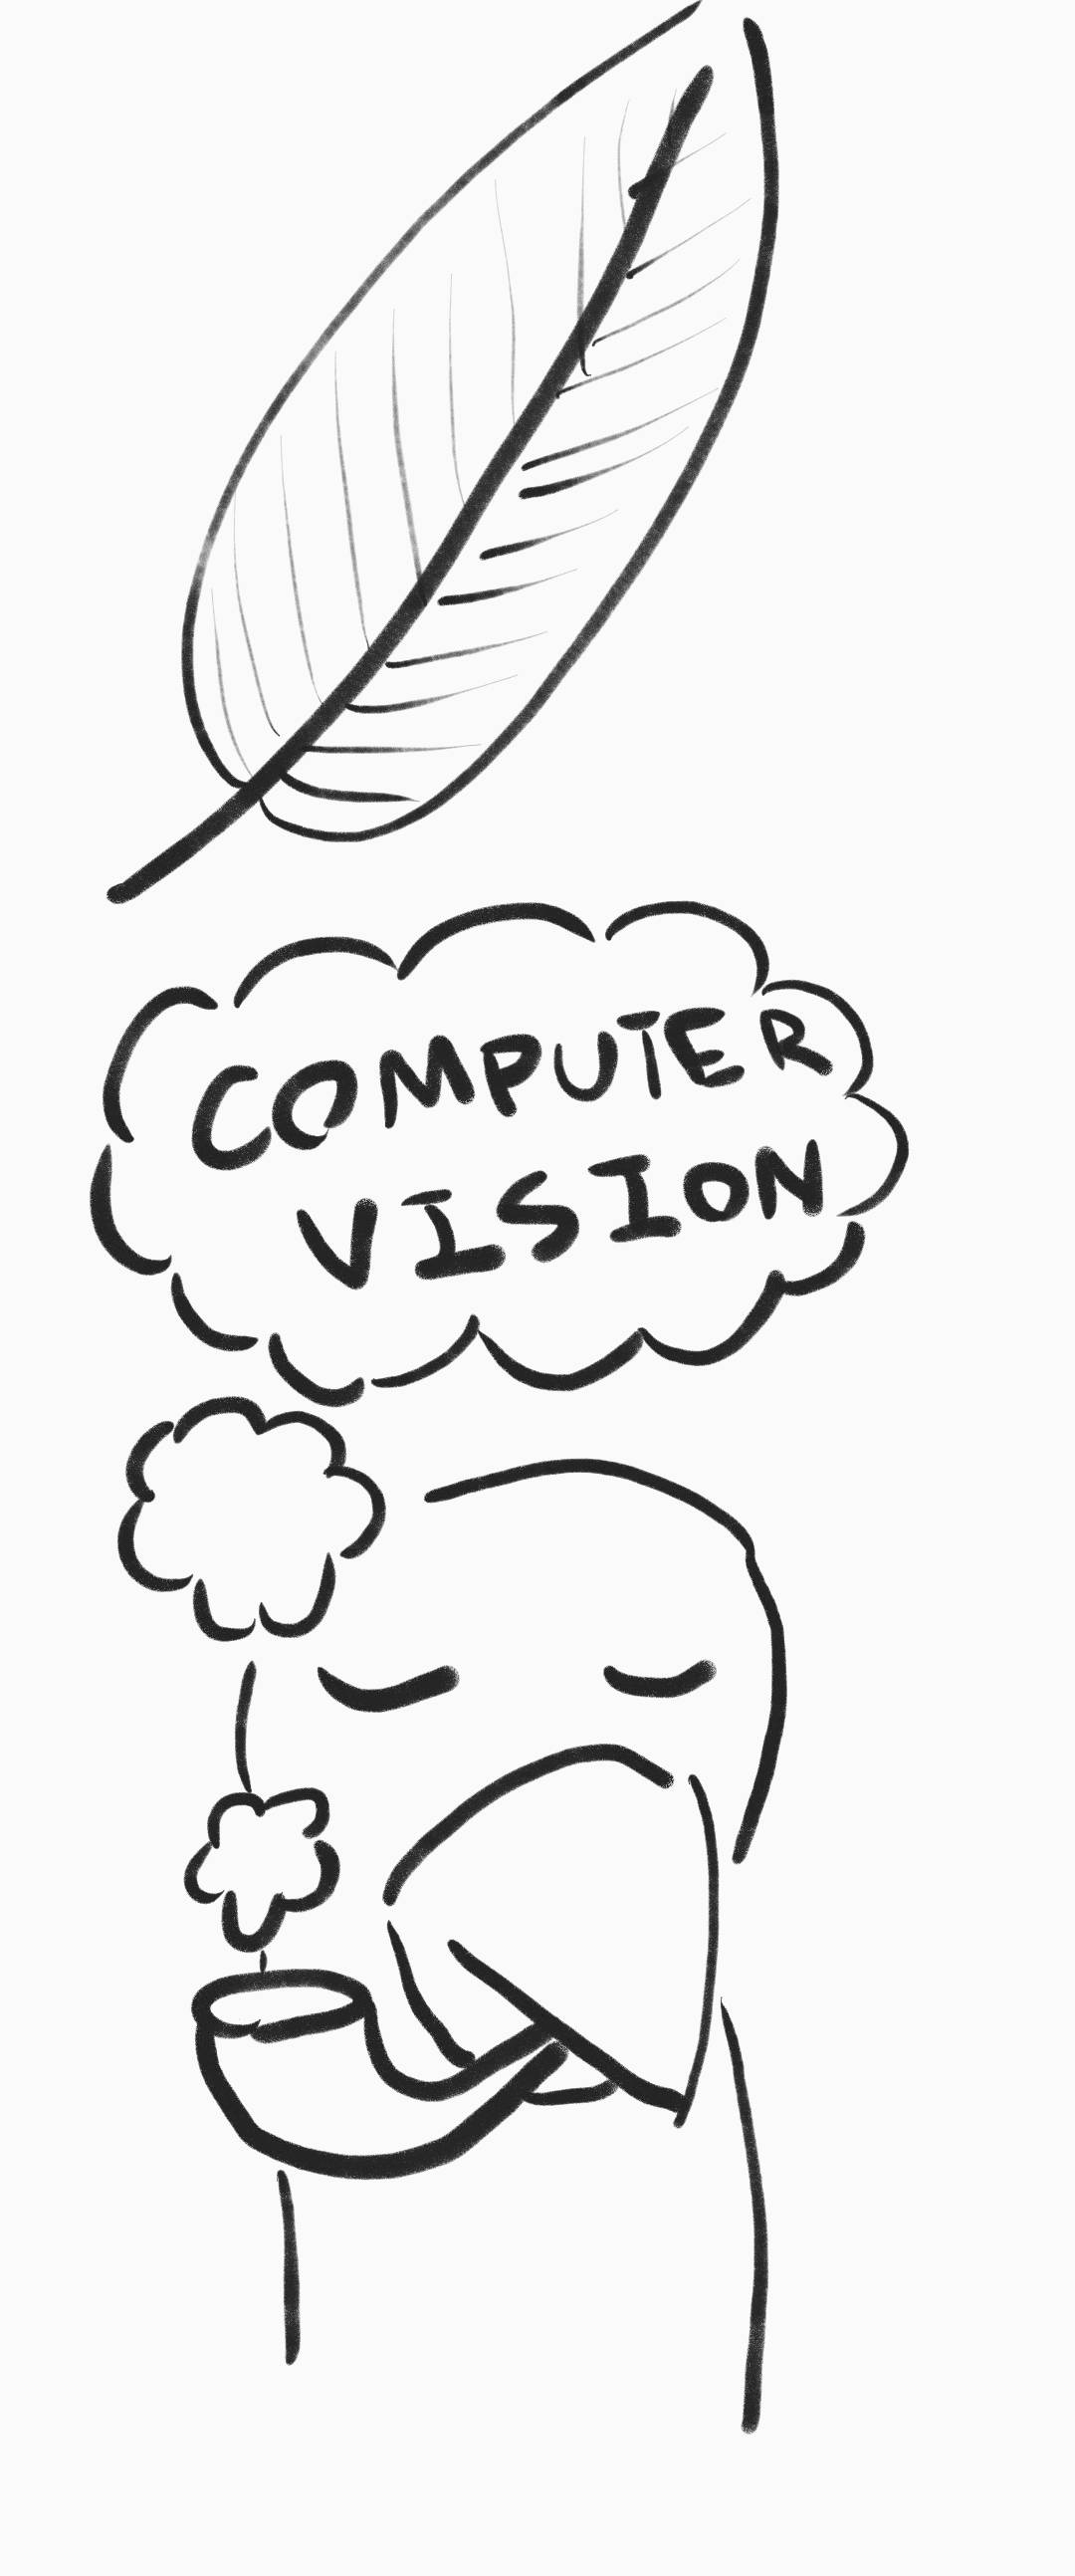 COMPUTER
VISION